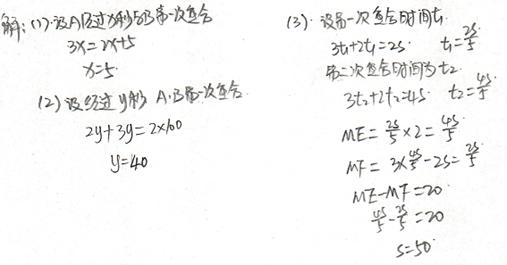 解:(1)设A经过x秒与B第一次重合
3x=2x+5
x=5.
(2)设经过y秒 A.B第一次重合
2y+3y=2×100
y=40
(3). 设第一次重合时间t₁
3t₁+2t₁=2s. t₁=2s/5
第二次重合时间为t₂.
3t₂+2t₂=4s. t₂=4s/5
ME=2s/5×2=4s/5
MF=3×4s/5-2s=2s/5
ME-MF=20.
4s/5-2s/5=20
s=50.